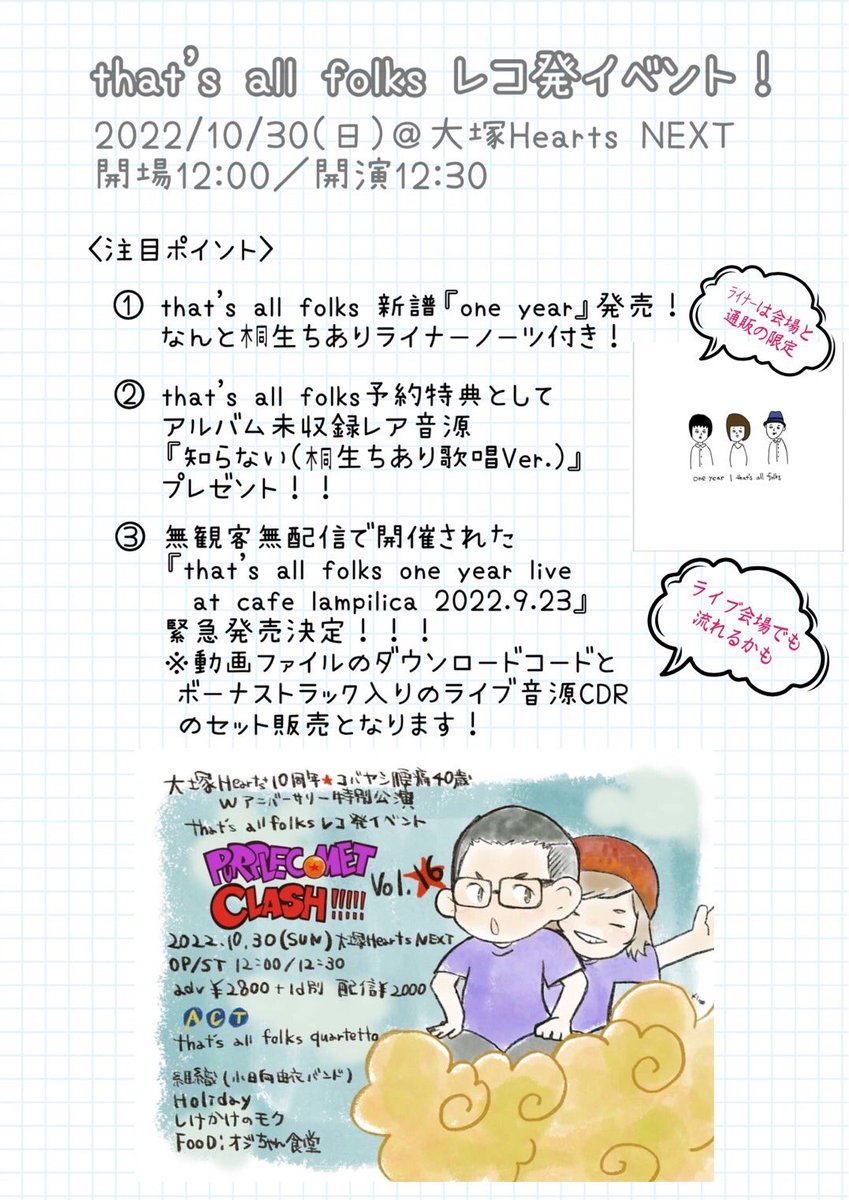 that's all folks レコ発イベント!
2022/10/30(日)@大塚Hearts NEXT
開場12:00/開演12:30
〈注目ポイント〉
① that's all folks 新譜『one year』発売!
なんと桐生ちありライナーノーツ付き!
ライナーは会場と
通販の限定
② that's all folks予約特典として
アルバム未収録レア音源
『知らない(桐生ちあり歌唱Ver.)』
プレゼント!!
one year | that's all folks
③ 無観客無配信で開催された
『that's all folks one year live
at cafe lampilica 2022.9.23』
緊急発売決定!!!
※動画ファイルのダウンロードコードと
ボーナストラック入りのライブ音源CDR
のセット販売となります!
ライブ会場でも
流れるかも
大塚Hearts10周年★コバヤシ腰痛40歳
Wアニバーサリー特別公演
that's all folksレコ発イベント
PURPLECOMET
CLASH!!!!! Vol.16
2022.10.30(SUN)大塚Hearts NEXT
OP/ST 12:00/12:30
adv ¥2800+1d別 配信¥2000
ACT
that's all folks quartetto
組織(小日向由衣バンド)
Holiday
しけかけのモク
FooD:オジちゃん食堂